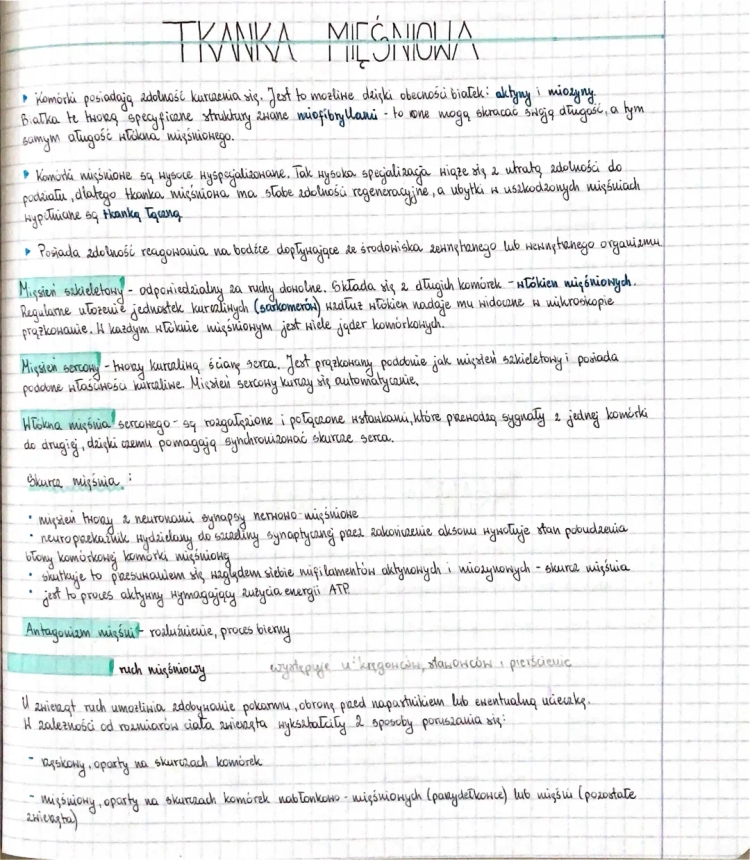 TKANKA MIĘŚNIOWA
▸ Komórki posiadają zdolność kurczenia się. Jest to możliwe dzięki obecności białek: aktyny i miozyny.
Białka te tworzą specyficzne struktury zwane miofibryllami - to one mogą skracać swoją długość, a tym
samym długość włókna mięśniowego.
▸ Komórki mięśniowe są wysoce wyspecjalizowane. Tak wysoka specjalizacja wiąże się z utratą zdolności do
podziału, dlatego tkanka mięśniowa ma słabe zdolności regeneracyjne, a ubytki w uszkodzonych mięśniach
wypełniane są tkanką łączną.
▸ Posiada zdolność reagowania na bodźce dopływające ze środowiska zewnętrznego lub wewnętrznego organizmu.
Mięsień szkieletowy - odpowiedzialny za ruchy dowolne. Składa się z długich komórek - włókien mięśniowych.
Regularne ułożenie jednostek kurczliwych (sarkomerów) wzdłuż włókien nadaje mu widoczne w mikroskopie
prążkowanie. W każdym włóknie mięśniowym jest wiele jąder komórkowych.
Mięsień sercowy - tworzy kurczliwą ścianę serca. Jest prążkowany podobnie jak mięsień szkieletowy i posiada
podobne właściwości kurczliwe. Mięsień sercowy kurczy się automatycznie.
Włókna mięśnia sercowego - są rozgałęzione i połączone wstawkami, które przewodzą sygnały z jednej komórki
do drugiej, dzięki czemu pomagają synchronizować skurcze serca.
Skurcz mięśnia :
• mięsień tworzy z neuronami synapsy nerwowo-mięśniowe
• neuroprzekaźnik wydzielany do szczeliny synaptycznej przez zakończenie aksonu wywołuje stan pobudzenia
błony komórkowej komórki mięśniowej
• skutkuje to przesuwaniem się względem siebie mifilamentów aktynowych i miozynowych - skurcz mięśnia
• jest to proces aktywny wymagający zużycia energii ATP.
Antagonizm mięśni - rozluźnienie, proces bierny
ruch mięśniowy występuje u kręgowców, stawonogów i pierścienic
U zwierząt ruch umożliwia zdobywanie pokarmu, obronę przed napastnikiem lub ewentualną ucieczkę.
W zależności od rozmiarów ciała zwierzęta wykształciły 2 sposoby poruszania się:
- rzęskowy, oparty na skurczach komórek
- mięśniowy, oparty na skurczach komórek nabłonkowo-mięśniowych (parzydełkowce) lub mięśni (pozostałe
zwierzęta)